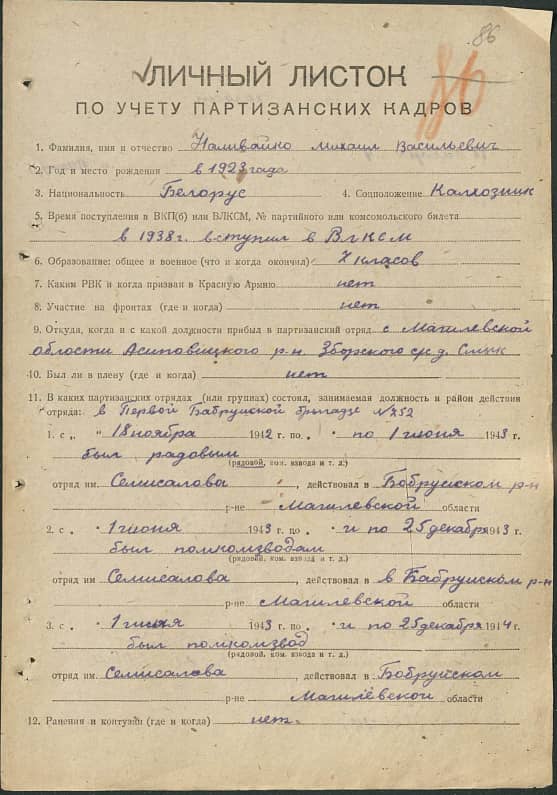 86
86
ЛИЧНЫЙ ЛИСТОК
ПО УЧЕТУ ПАРТИЗАНСКИХ КАДРОВ
1. Фамилия, имя и отчество Наливайко Михаил Васильевич
2. Год и место рождения в 1923 года
3. Национальность Белорус 4. Соцположение Каллозник
5. Время поступления в ВКП(б) или ВЛКСМ, № партийного или комсомольского билета
в 1938 г. вступил в ВлКСМ
6. Образование: общее и военное (что и когда окончил) 7 класов
7. Каким РВК и когда призван в Красную Армию нет
8. Участие на фронтах (где и когда) нет
9. Откуда, когда и с какой должности прибыл в партизанский отряд с Магилевской
области Асиповицкого р-н. Зборского с/с д. Смык
10. Был ли в плену (где и когда) нет
11. В каких партизанских отрядах (или группах) состоял, занимаемая должность и район действия
отряда: в Первой Бабруйской бригаде № 252
1. с „ " 18 ноября 1942 г. по „ " по 1 июня 1943 г.
был радовым
(рядовой, ком. взвода и т. д.)
отряд им Семисалова, действовал в Бобруйском р-н
р-не Магилевской области
2. с „ " 1 июня 1943 г. по " и по 25 декабря 1943 г.
был помкомзводам
(рядовой, ком. взвода и т. д.)
отряд им Семисалова, действовал в в Бабруйском р-н
р-не Магилевской области
3. с „ " 1 июня 1943 г. по " и по 25 декабря 1944 г.
был помкомзвод
(рядовой, ком. взвода и т. д.)
отряд им. Семисалова, действовал в Бобруйском
р-не Магилевской области
12. Ранения и контузии (где и когда) нет.